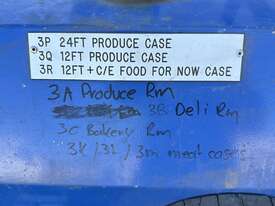 3P 24FT PRODUCE CASE
3Q 12FT PRODUCE CASE
3R 12FT + C/E FOOD FOR NOW CASE
3A Produce Rm
3B Deli Rm
3C Bakery Rm
3K/3L/3m meat cases